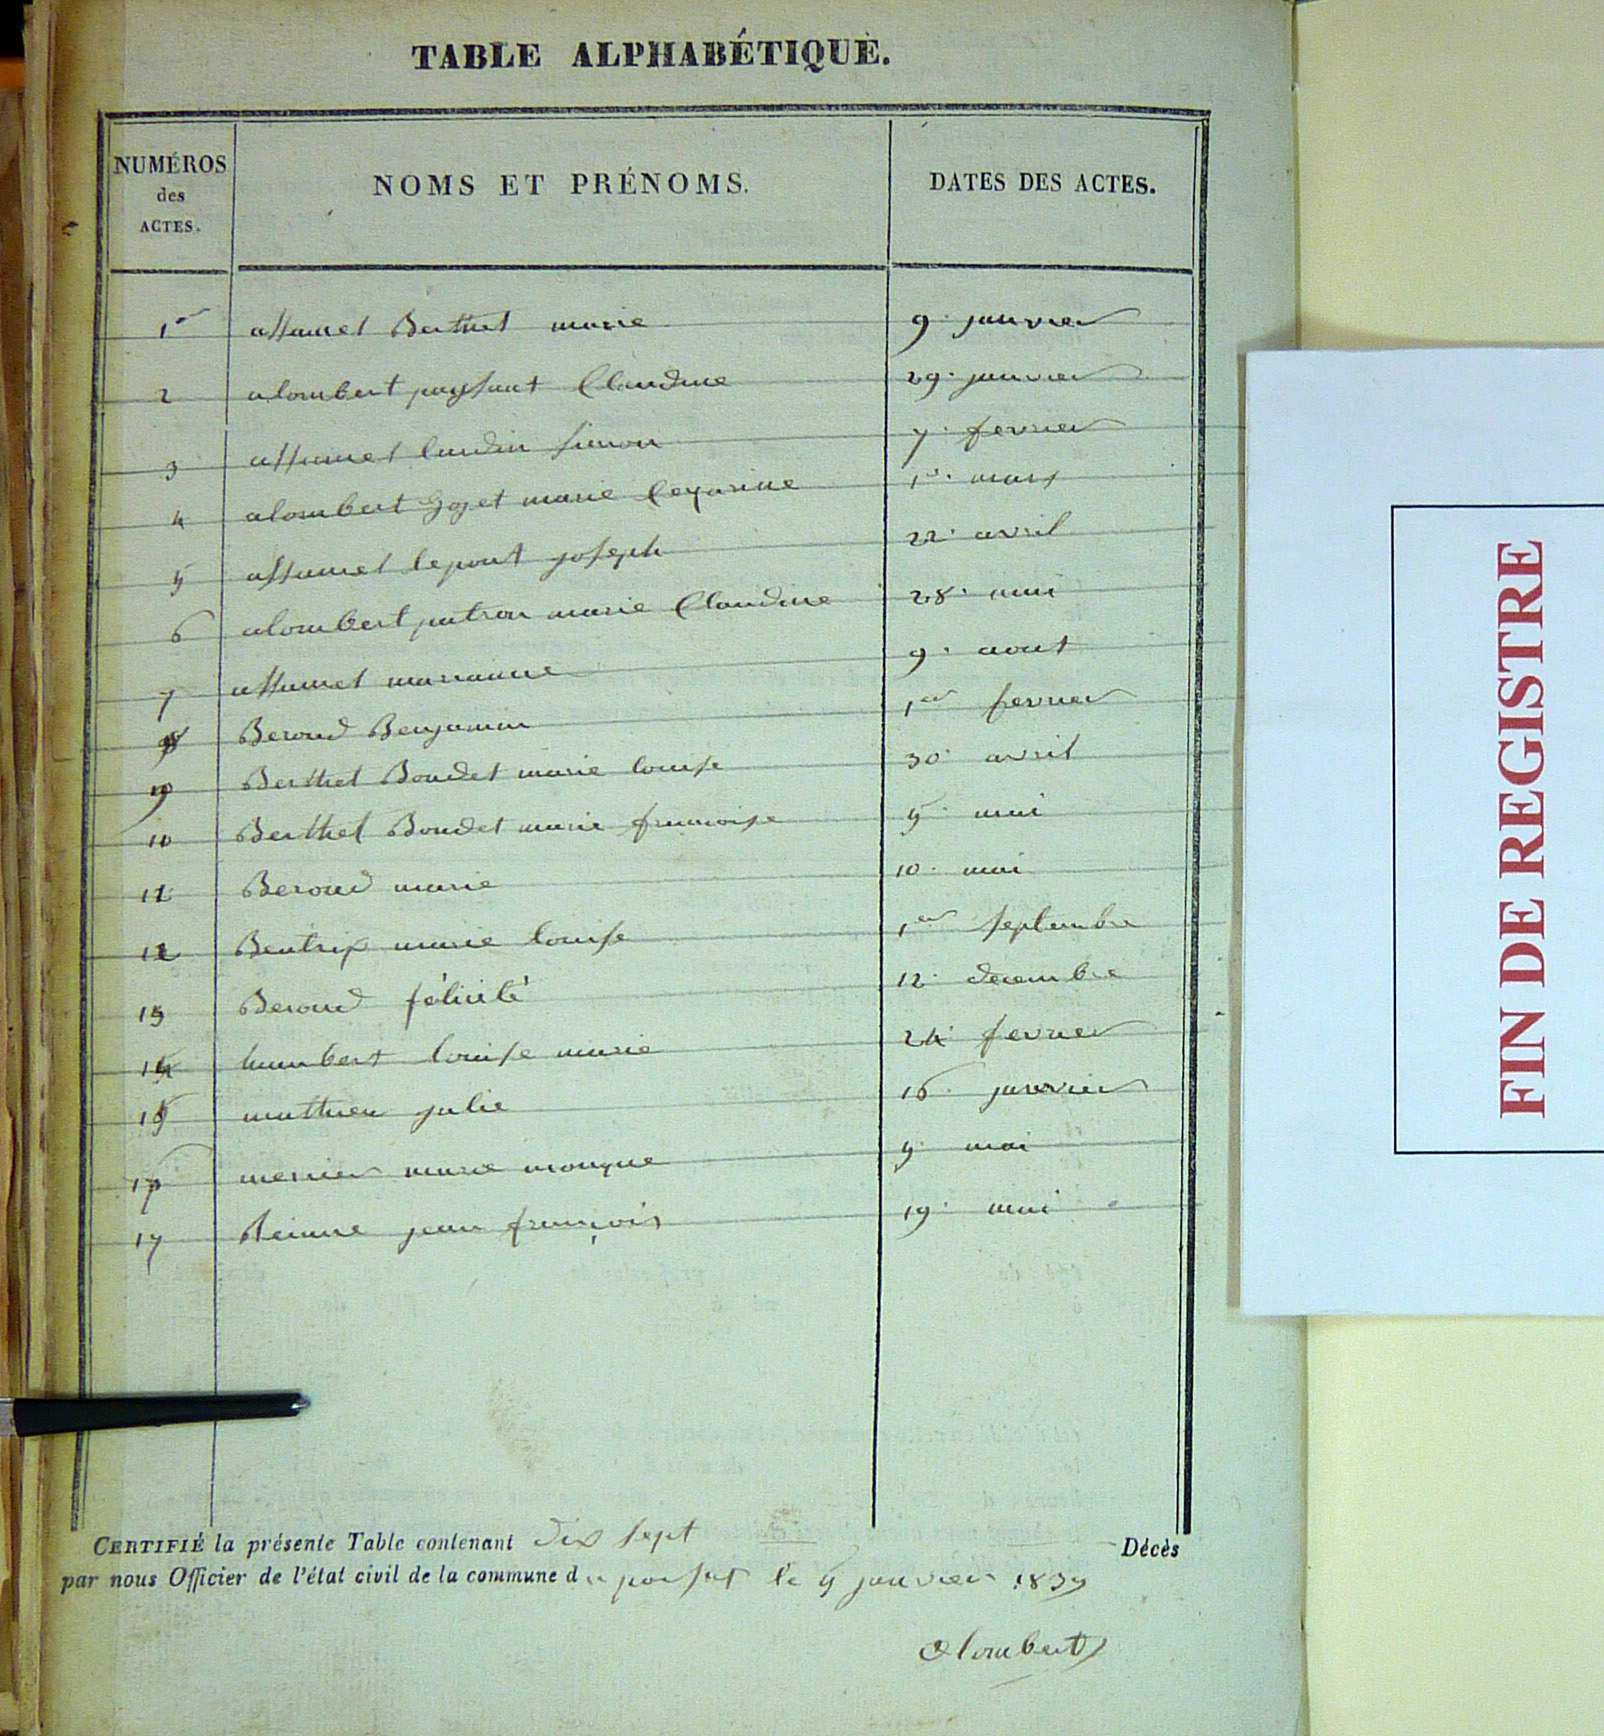 TABLE ALPHABÉTIQUE.
NUMÉROS des ACTES. NOMS ET PRÉNOMS. DATES DES ACTES.
1er assumel Berthet marie 9. janvier
2 alombert paysant Claudine 29. janvier
3 assumel landin simon 7. fevrier
4 alombert Goget marie Cezarine 1er. mars
5 assumel lepont joseph 22. avril
6 alombert patron marie Claudine 28. mai
7 assumel marianne 9. aout
8 Beroud Benjamin 1er fevrier
9 Berthet Boudet marie louise 30. avril
10 Berthet Boudet marie francoise 5. mai
11 Beroud marie 10. mai
12 Beatrix marie louise 1er septembre
13 Beroud félicité 12. decembre
14 humbert louise marie 24. fevrier
15 mathieu julie 16. janvier
16 mercier marie monique 9. mai
17 jean françois 19. mai
CERTIFIÉ la présente Table contenant dix sept Décès
par nous Officier de l'état civil de la commune d le 5 janvier 1839
alombert
FIN DE REGISTRE